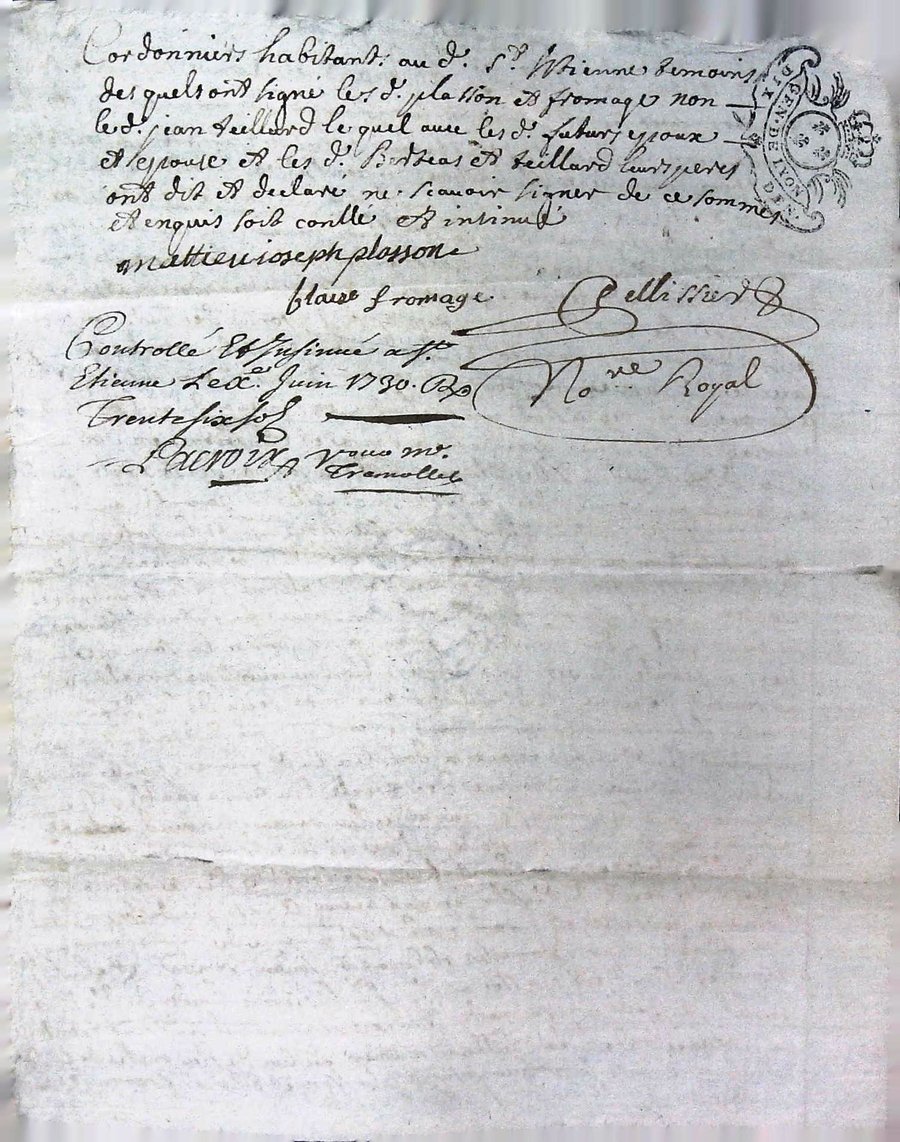 Cordonniers habitants au d. St. Etienne temoins
des quels ont signé les d. plasson et fromage non
le d. jean teillard le quel avec les d. futurs epoux
et epouse et les d. Berteas et teillard leurs peres
ont dit et declaré ne scavoir signer de ce sommés
et enquis soit conlle et insinué
mattieu joseph plasson
blaise fromage
Pellissier
Nore Royal
Controllé Et Insinué a St
Etienne Le xe. Juin 1730. R
Trente six sols
Lacroix
pour mr.
Tramollet
DIX
GEN DE